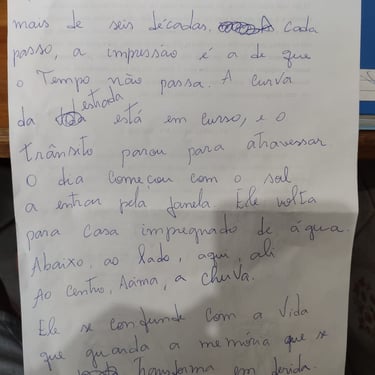 mais de seis décadas. A cada
passo, a impressão é a de que
o Tempo não passa. A curva
da estrada está em curso, e o
trânsito parou para atravessar
O dia começou com o sol
a entrar pela janela. Ele volta
para casa impregnado de água.
Abaixo, ao lado, aqui, ali
Ao centro, Acima, a chuva.
Ele se confunde com a vida
que guarda a memória que se
transforma em